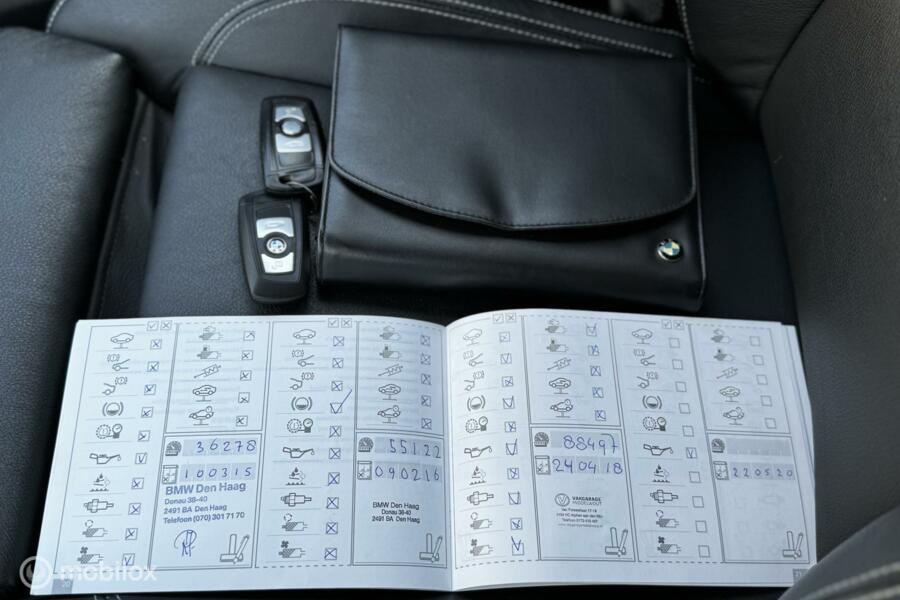 36278
100315
BMW Den Haag
Donau 38-40
2491 BA Den Haag
Telefoon (070) 301 71 70
55122
040216
BMW Den Haag
Donau 38-40
2491 BA Den Haag
88497
240418
VAKGARAGE
220520
mobilox